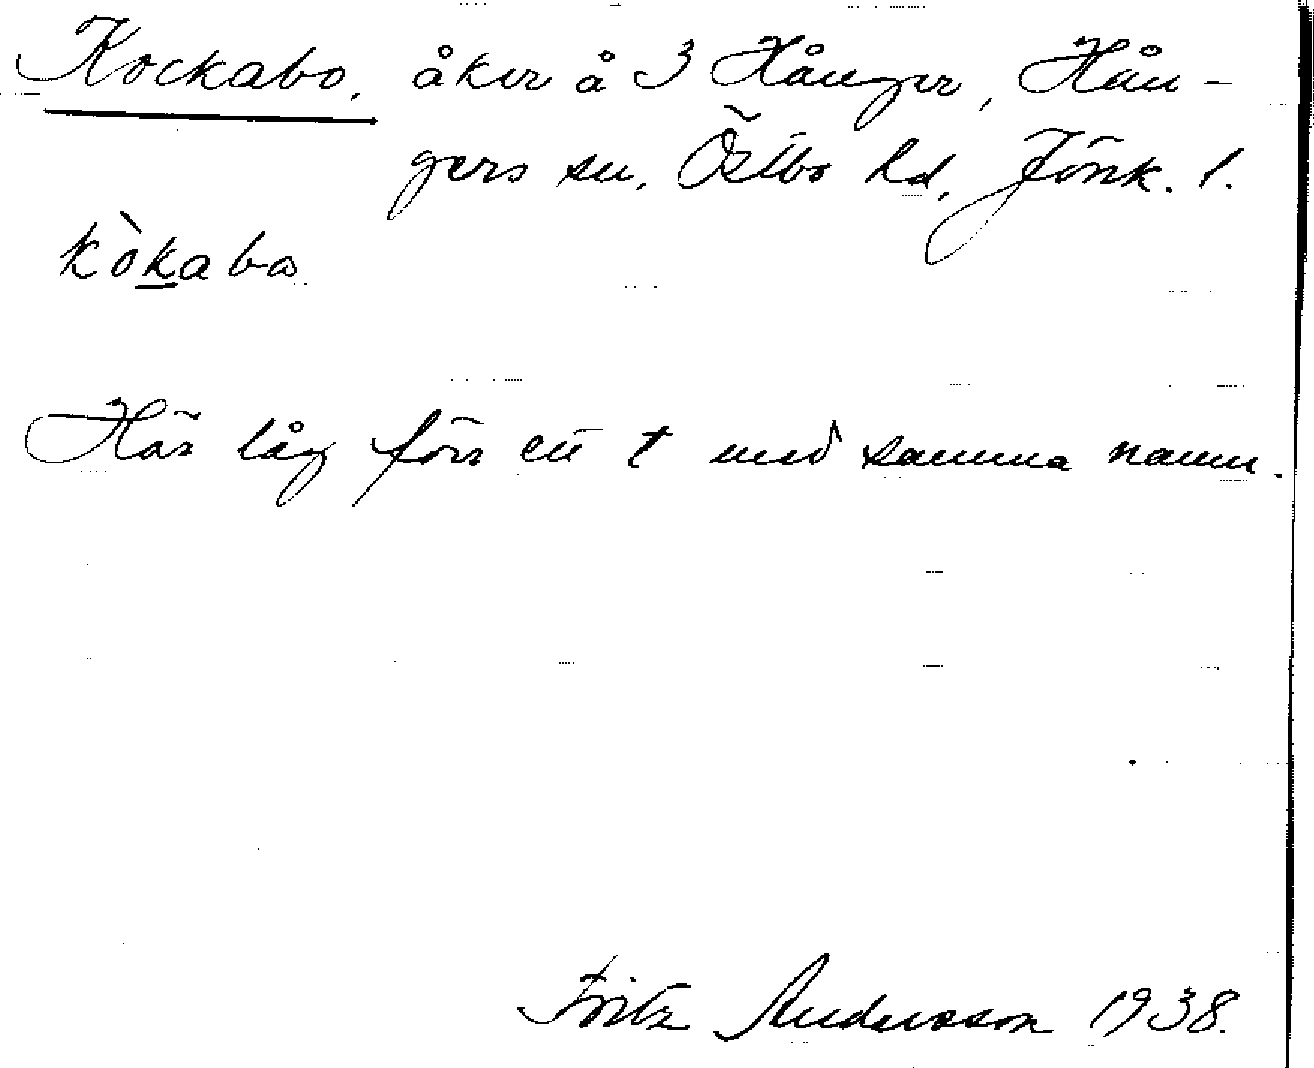 Kockabo, åker å 3 Hånger, Hån-
gers sn, Östbo hd, Jönk. l.
kòkabo
Här låg förr ett t med samma namn.
Fritz Andersson 1938.